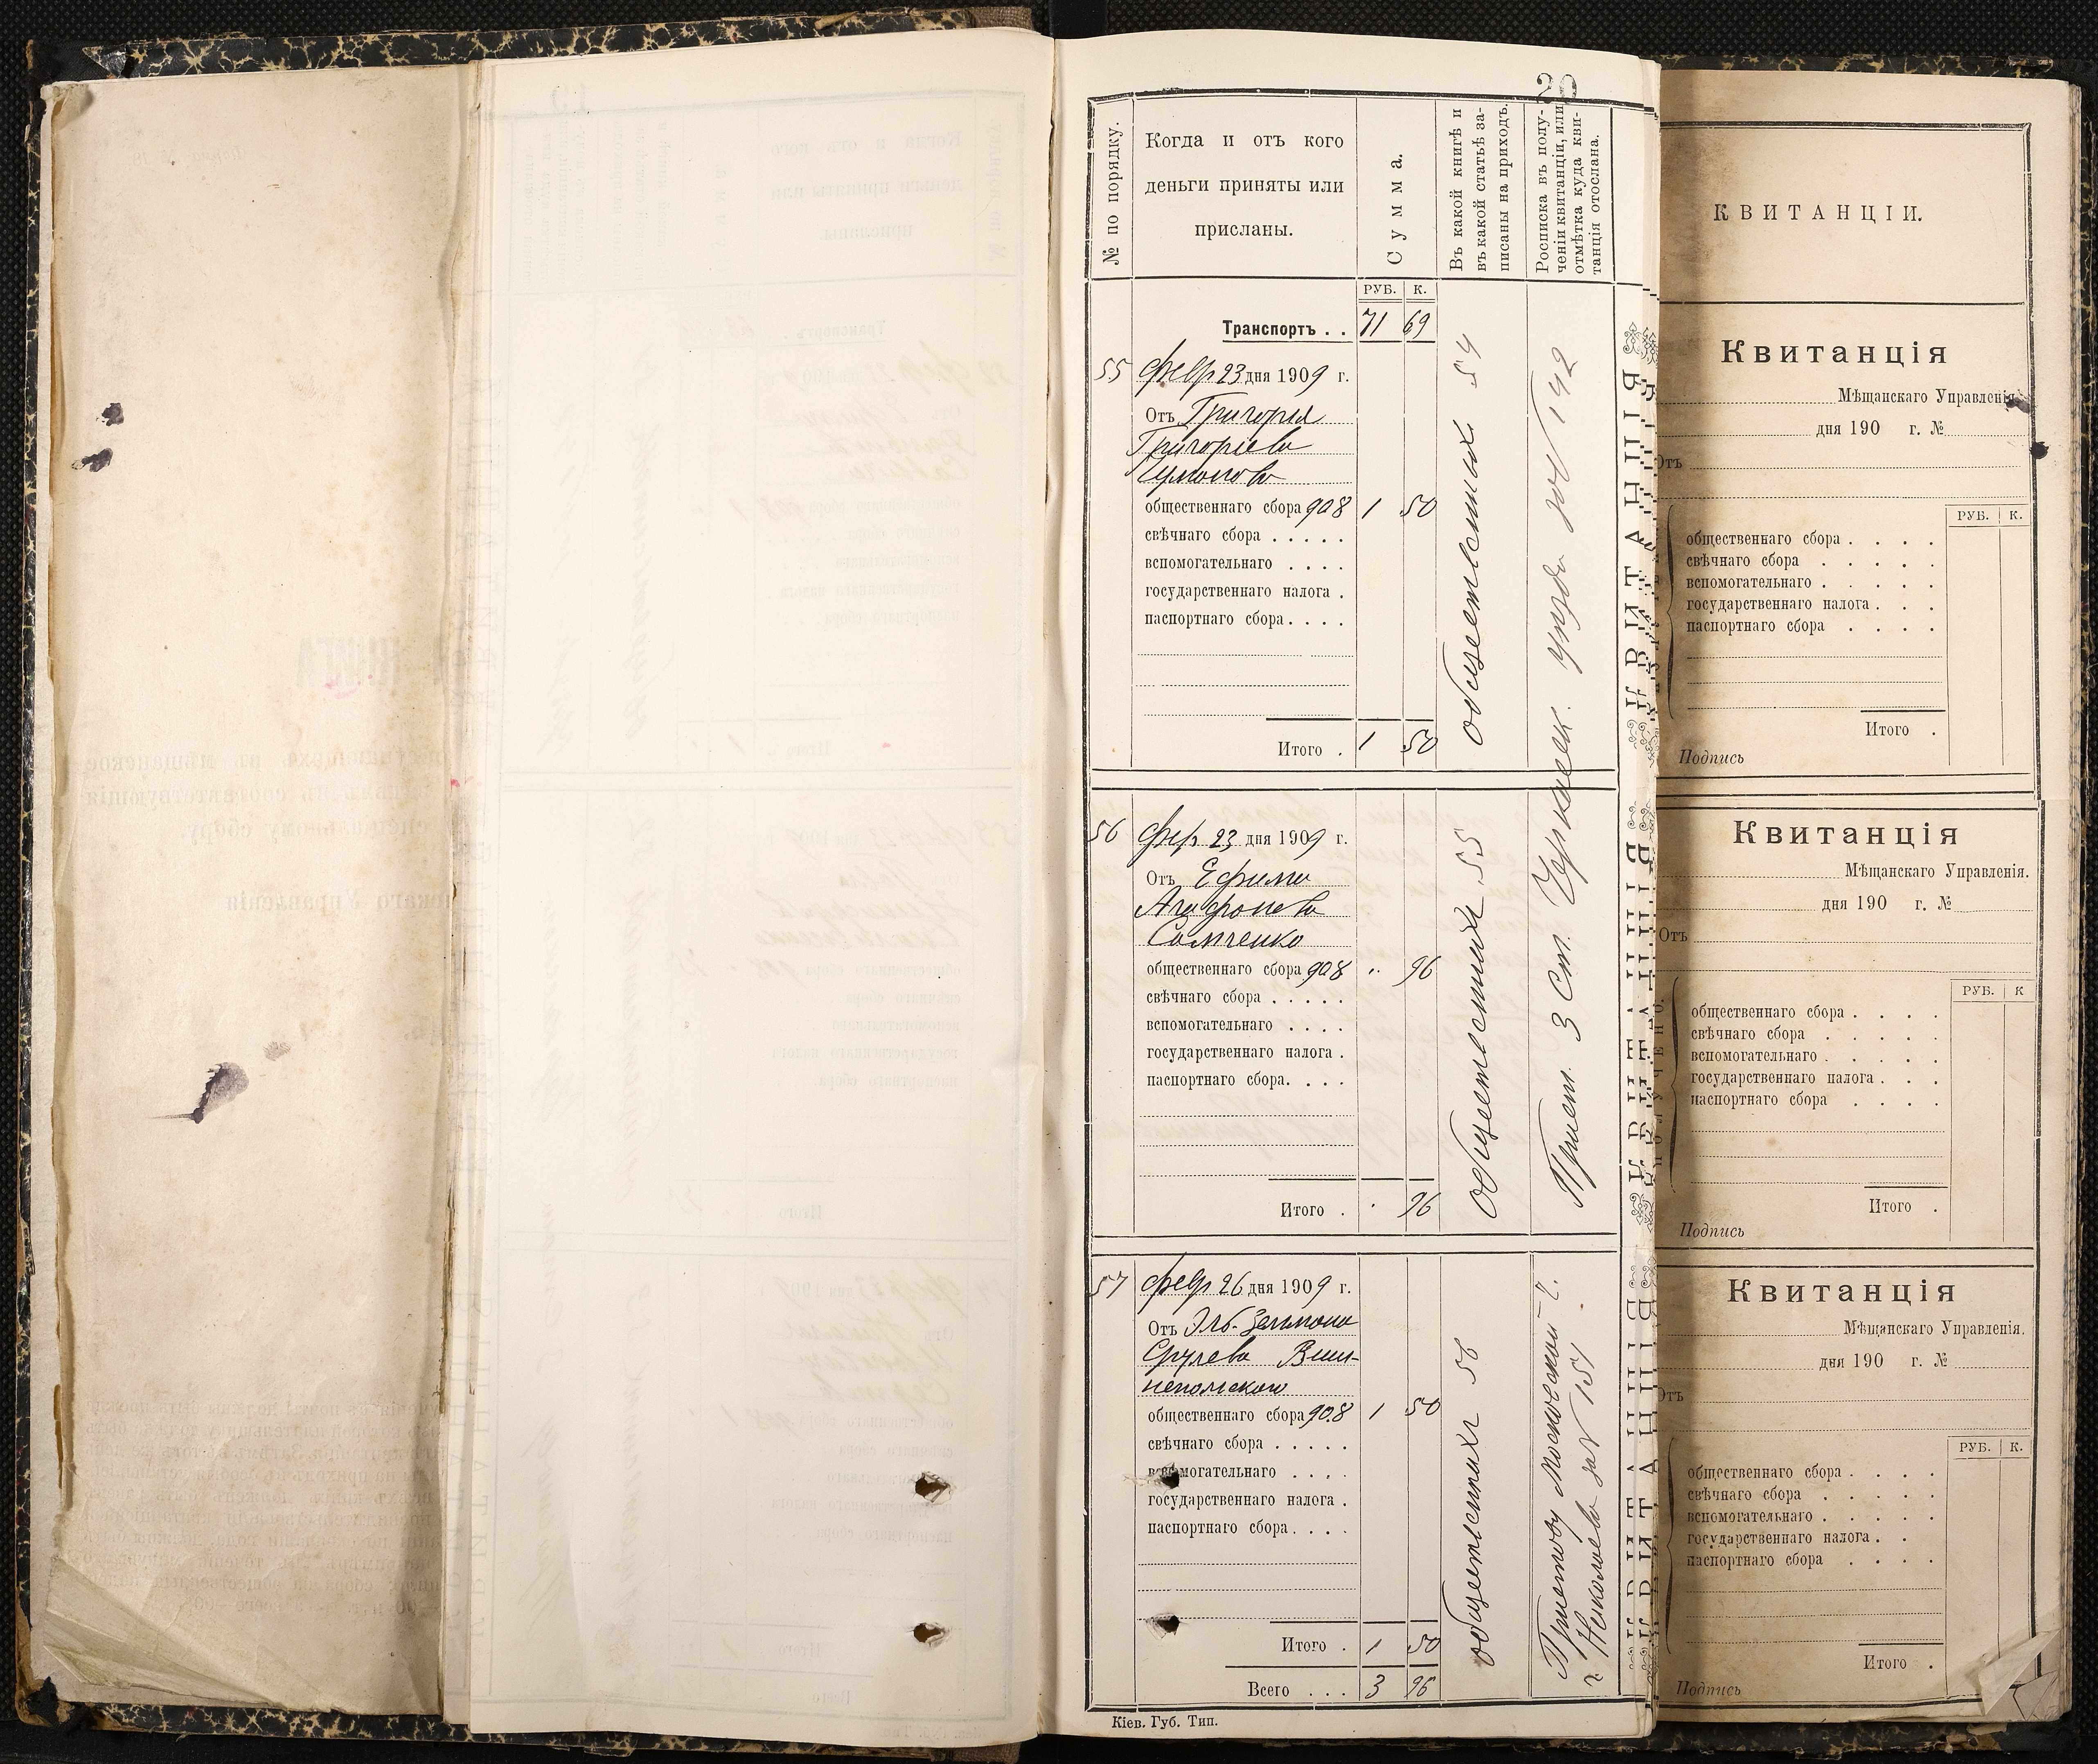 20
№ по порядку.
Когда и отъ кого
деньги приняты или
присланы.
Сумма.
Въ какой книгѣ и
въ какой статьѣ за-
писаны на приходъ.
Росписка въ полу-
ченіи квитанціи, или
отмѣтка куда кви-
танція отослана.
РУБ. К.
Транспортъ . . 71 69
55 февр 23 дня 1909 г.
Отъ Григорія
Григоріева
общественнаго сбора 908 1 50
свѣчнаго сбора . . . . .
вспомогательнаго . . . .
государственнаго налога .
паспортнаго сбора . . . .
Итого . 1 50
общественныхъ 54
56 февр 23 дня 1909 г.
Отъ Ефима
Агафонова
Самченко
общественнаго сбора 908 " 96
свѣчнаго сбора . . . . .
вспомогательнаго . . . .
государственнаго налога .
паспортнаго сбора. . . .
Итого . 96
55
Прист. 3 Ст. уѣзда за № 142
57 февр 26 дня 1909 г.
Отъ
общественнаго сбора 908 1 50
свѣчнаго сбора . . . . .
вспомогательнаго . . . .
государственнаго налога .
паспортнаго сбора. . . .
Итого . 1 50
Всего . . . 3 96
общественныхъ 56
Приставу Московской ч.
г Николаева за № 151
Кіев. Губ. Тип.
КВИТАНЦІИ.
Квитанція
Мѣщанскаго Управленія.
дня 190 г. №
Отъ
РУБ. К.
общественнаго сбора . . . .
свѣчнаго сбора . . . . .
вспомогательнаго . . . . .
государственнаго налога . . .
паспортнаго сбора . . . .
Итого .
Подпись
Квитанція
Мѣщанскаго Управленія.
дня 190 г. №
Отъ
РУБ. К
общественнаго сбора . . . .
свѣчнаго сбора . . . . .
вспомогательнаго . . . . .
государственнаго налога . . .
паспортнаго сбора . . . .
Итого .
Подпись
Квитанція
Мѣщанскаго Управленія.
дня 190 г. №
Отъ
РУБ. К.
общественнаго сбора . . . .
свѣчнаго сбора . . . . .
вспомогательнаго . . . . .
государственнаго налога . .
паспортнаго сбора . . . .
Итого .
Подпись